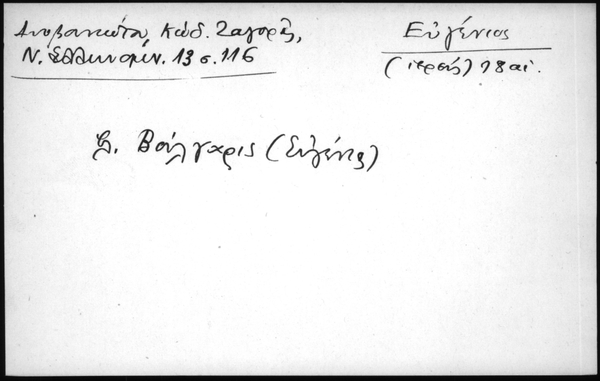 Λαμπανιώτα, Κώδ. Ζαγορᾶς,
Ν. Ἑλληνομν. 13 σ. 116
Εὐγένιος
(ἱερεύς) 18 αἰ.
βλ. Βούλγαρις (Εὐγένιος)